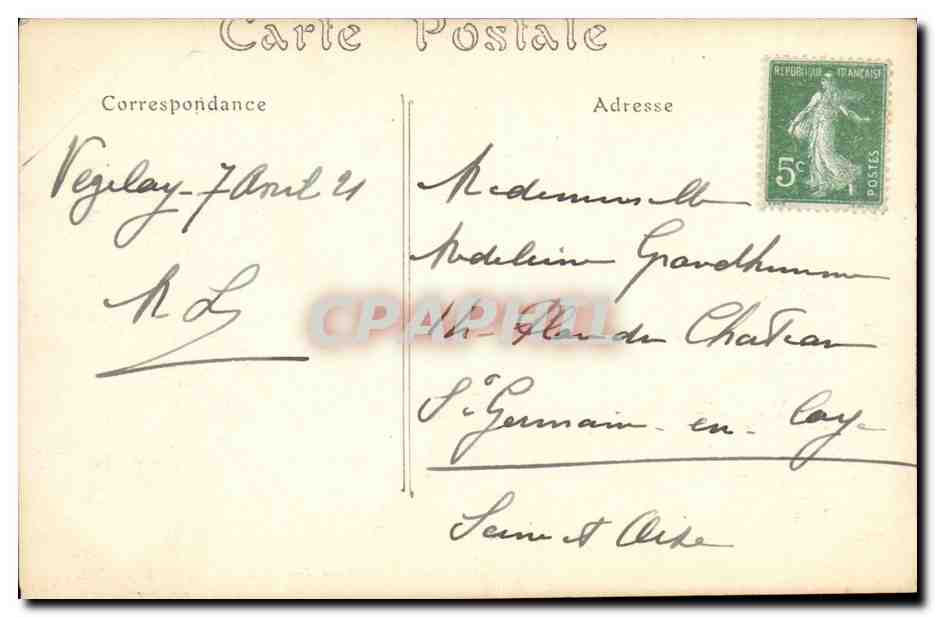 Carte Postale
Correspondance
Adresse
REPUBLIQUE FRANÇAISE
5c
POSTES
Vézelay - 7 Avril 21
M L
Mademoiselle
Madeleine Grandhomme
Place du Château
St Germain - en - Laye
Seine et Oise
CPAPHIL